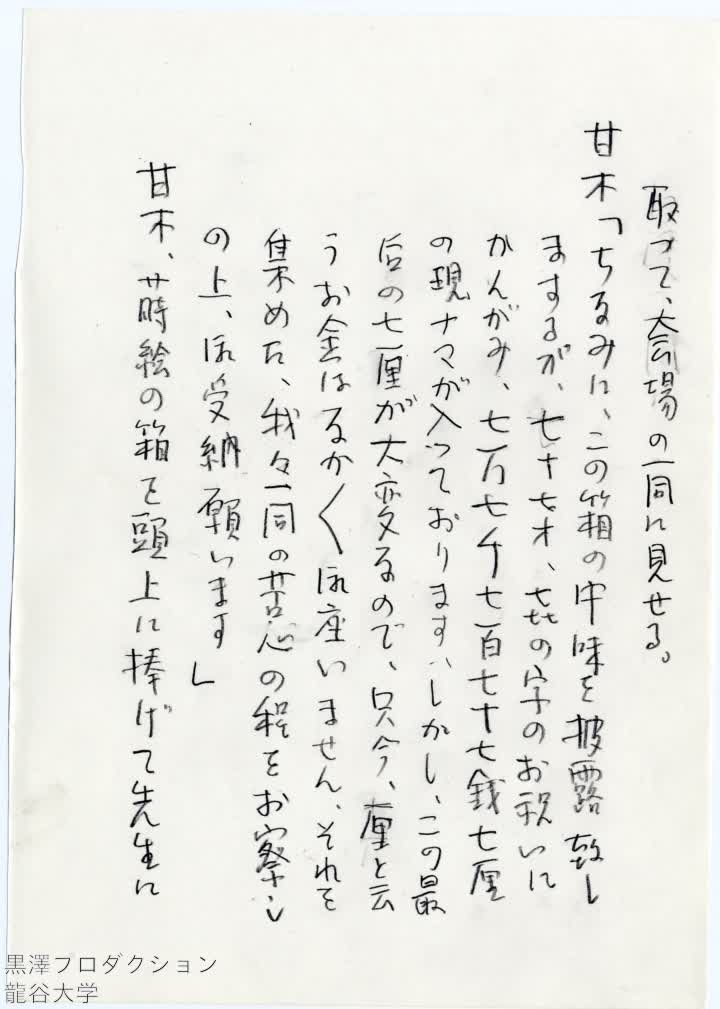 取って、会場の一同に見せる。
甘木「ちなみに、この箱の中味を披露致し
まするが、七十七才、㐂の字のお祝いに
かんがみ、七万七千七百七十七銭七厘
の現ナマが入っております、しかし、この最
后の七厘が大変なので、只今、厘と云
うお金はなか〱御座いません、それを
集めた、我々一同の苦心の程をお察し
の上、御受納願います」
甘木、蒔絵の箱を頭上に捧げて先生に
黒澤プロダクション
龍谷大学